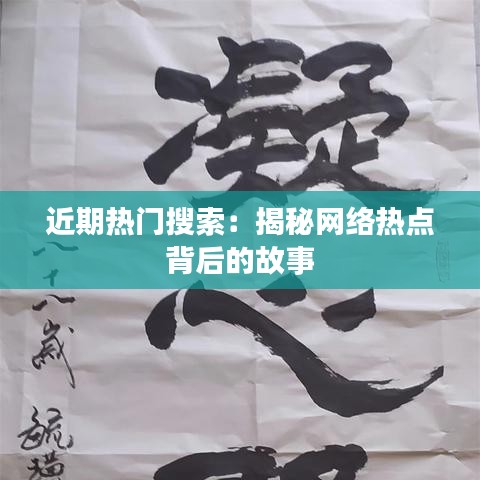 近期热门搜索：揭秘网络热点
背后的故事
凝
心
八十八歲